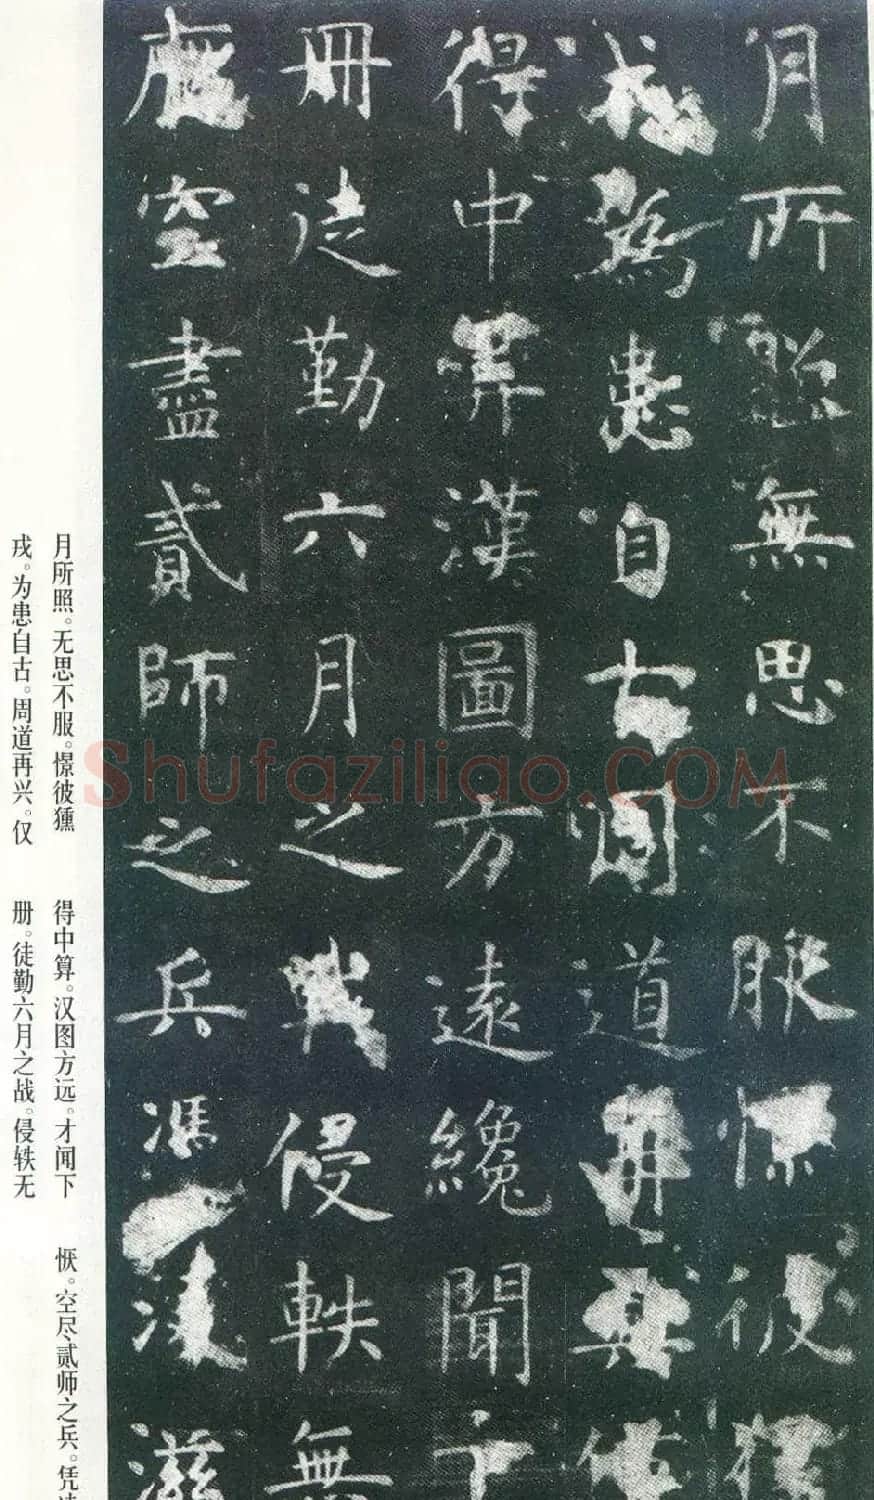 月所照無思不服憬彼獯
戎為患自古周道再興僅
得中筭漢圖方遠纔聞下
冊徒勤六月之戰侵軼無
厭空盡貳師之兵馮凌滋
月所照。无思不服。憬彼獯
戎。为患自古。周道再兴。仅
得中算。汉图方远。才闻下
册。徒勤六月之战。侵轶无
恹。空尽贰师之兵。凭
Shufaziliao.COM